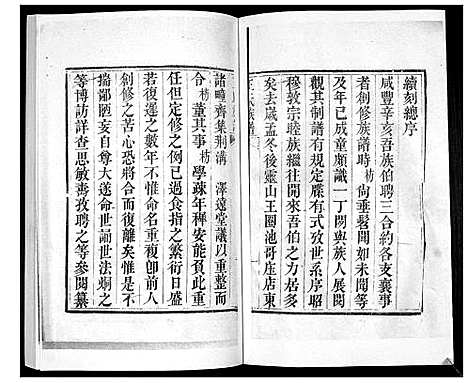 續刻總序
咸豐辛亥吾族伯聘三合約各支襄事
者創修族譜時楷尚垂髫聞如未聞等
及年已成童頗識一丁閒與族人展閱
觀其制譜有規定牒有式攷世系序昭
穆敦宗睦族繼往開來吾伯之力
矣去歲孟冬後靈山王圈池哥座店東
諸疃齊集荆溝澤遠堂議以重整而
令楷董其事楷學疎年穉安能負此重
任但定修之例已過食指之繁衍日盛
若復遲之數年不惟命名重複卽前人
創修之苦心恐將合而復離矣惟是不
揣鄙陋亥自尊大遂倩諭世法炯之
等博訪詳查思敏壽孜聘之等參閱纂